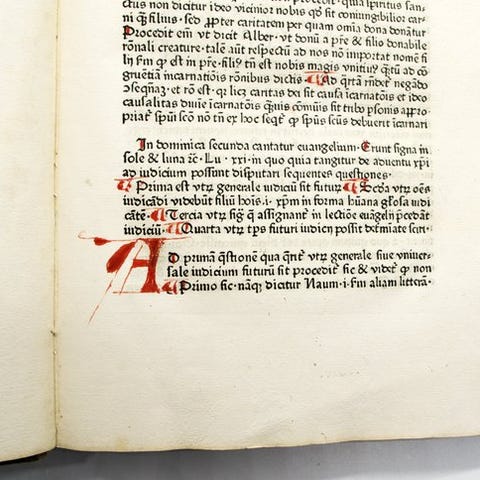 ctus non dicitur ideo vicinior nobis qđ sit coniungibilior cari-
ni q̄ filius · sed ꝓpter caritatem per quam omia dona donātur
Procedit eīn vt dicit Alber · vt donū a pr̄e & filio donabile
rōnali creature · talē aūt respectū ad nos nō importat nomē fi
lij sm̄ ꝙ est in pr̄e · filiꝰ tn̄ est nobis magis vnitiuꝰ
gruētiā incarnatiōis rōnibus dictis ¶ Ad q̄rtā rn̄det negādo
ɔseqn̄az · et rō est · qꝛ licz caritas dei sit causa īcarnatōis et ideo
causalitas diuīe īcarnatōis
priaꞇ̄ spūi scō nō tn̄ ex hoc seqꞇ̄ ꝙ spūs scūs debuerit īcarnari
In dominica secunda cantatur euangelium · Erunt signa in
sole & luna ⁊c · Lu · xxi · in quo quia tangitur de aduentu xp̄i
ad iudicium possunt disputari sequentes questiones ·
¶ Prima est vtꝝ generale iudiciū sit futuꝝ ¶ Scd̄a vtꝝ oēs
iudicādi videbūt filiū hoīs · i · xp̄m in forma hūana gl̄osa iudi
cātē · ¶ Tercia vtꝝ siḡ ꝙ assignāt̄ in lectiōe euāgelij p̄cedāt
iudiciū · ¶ Quarta vtꝝ tp̄s futuri iudicij possit det̄miate sciri ·
Ad primā q̄stionē qua q̄rit̄ vtꝝ generale siue vniuer-
sale iudicium futurū sit procedit̄ sic & videt̄ ꝙ non
¶ Primo sic · nāqꝫ dicitur Naum · i · sm̄ aliam litterā ·